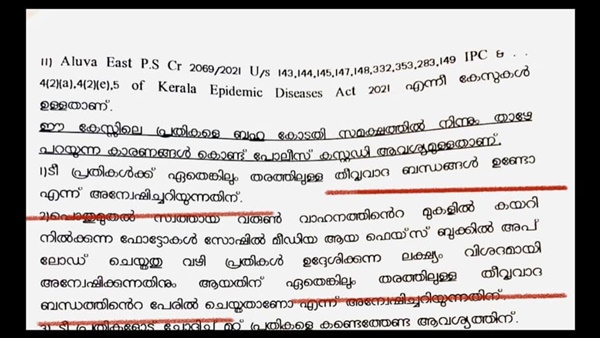 11) Aluva East P.S Cr 2069/2021 U/s 143,144,145,147,148,332,353,283,149 IPC & . .
4(2)(a),4(2)(e),5 of Kerala Epidemic Diseases Act 2021 എന്നീ കേസുകൾ
ഉള്ളതാണ്.
ഈ കേസ്സിലെ പ്രതികളെ ബഹു കോടതി സമക്ഷത്തിൽ നിന്നും താഴേ
പറയുന്ന കാരണങ്ങൾ കൊണ്ട് പോലീസ് കസ്റ്റഡി അവശ്യമുള്ളതാണ്.
1)ടീ പ്രതികൾക്ക് ഏതെങ്കിലും തരത്തിലുള്ള തീവ്രവാദ ബന്ധങ്ങൾ ഉണ്ടോ
എന്ന് അന്വേഷിച്ചറിയുന്നതിന്.
2)പൊതുമുതൽ സ്വത്തായ വരുൺ വാഹനത്തിന്റെ മുകളിൽ കയറി
നിൽക്കുന്ന ഫോട്ടോകൾ സോഷിൽ മീഡിയ ആയ ഫെയ്സ് ബുക്കിൽ അപ്
ലോഡ് ചെയ്തതു വഴി പ്രതികൾ ഉദ്ദേശിക്കുന്ന ലക്ഷ്യം വിശദമായി
അന്വേഷിക്കുന്നതിനും ആയതിന് ഏതെങ്കിലും തരത്തിലുള്ള തീവ്രവാദ
ബന്ധത്തിന്റെ പേരിൽ ചെയ്തതാണോ എന്ന് അന്വേഷിച്ചറിയുന്നതിന്
3) ടീ പ്രതികളോട് ചോദിച്ച് മറ്റ് പ്രതികളെ കണ്ടെത്തേണ്ട ആവശ്യത്തിന്.